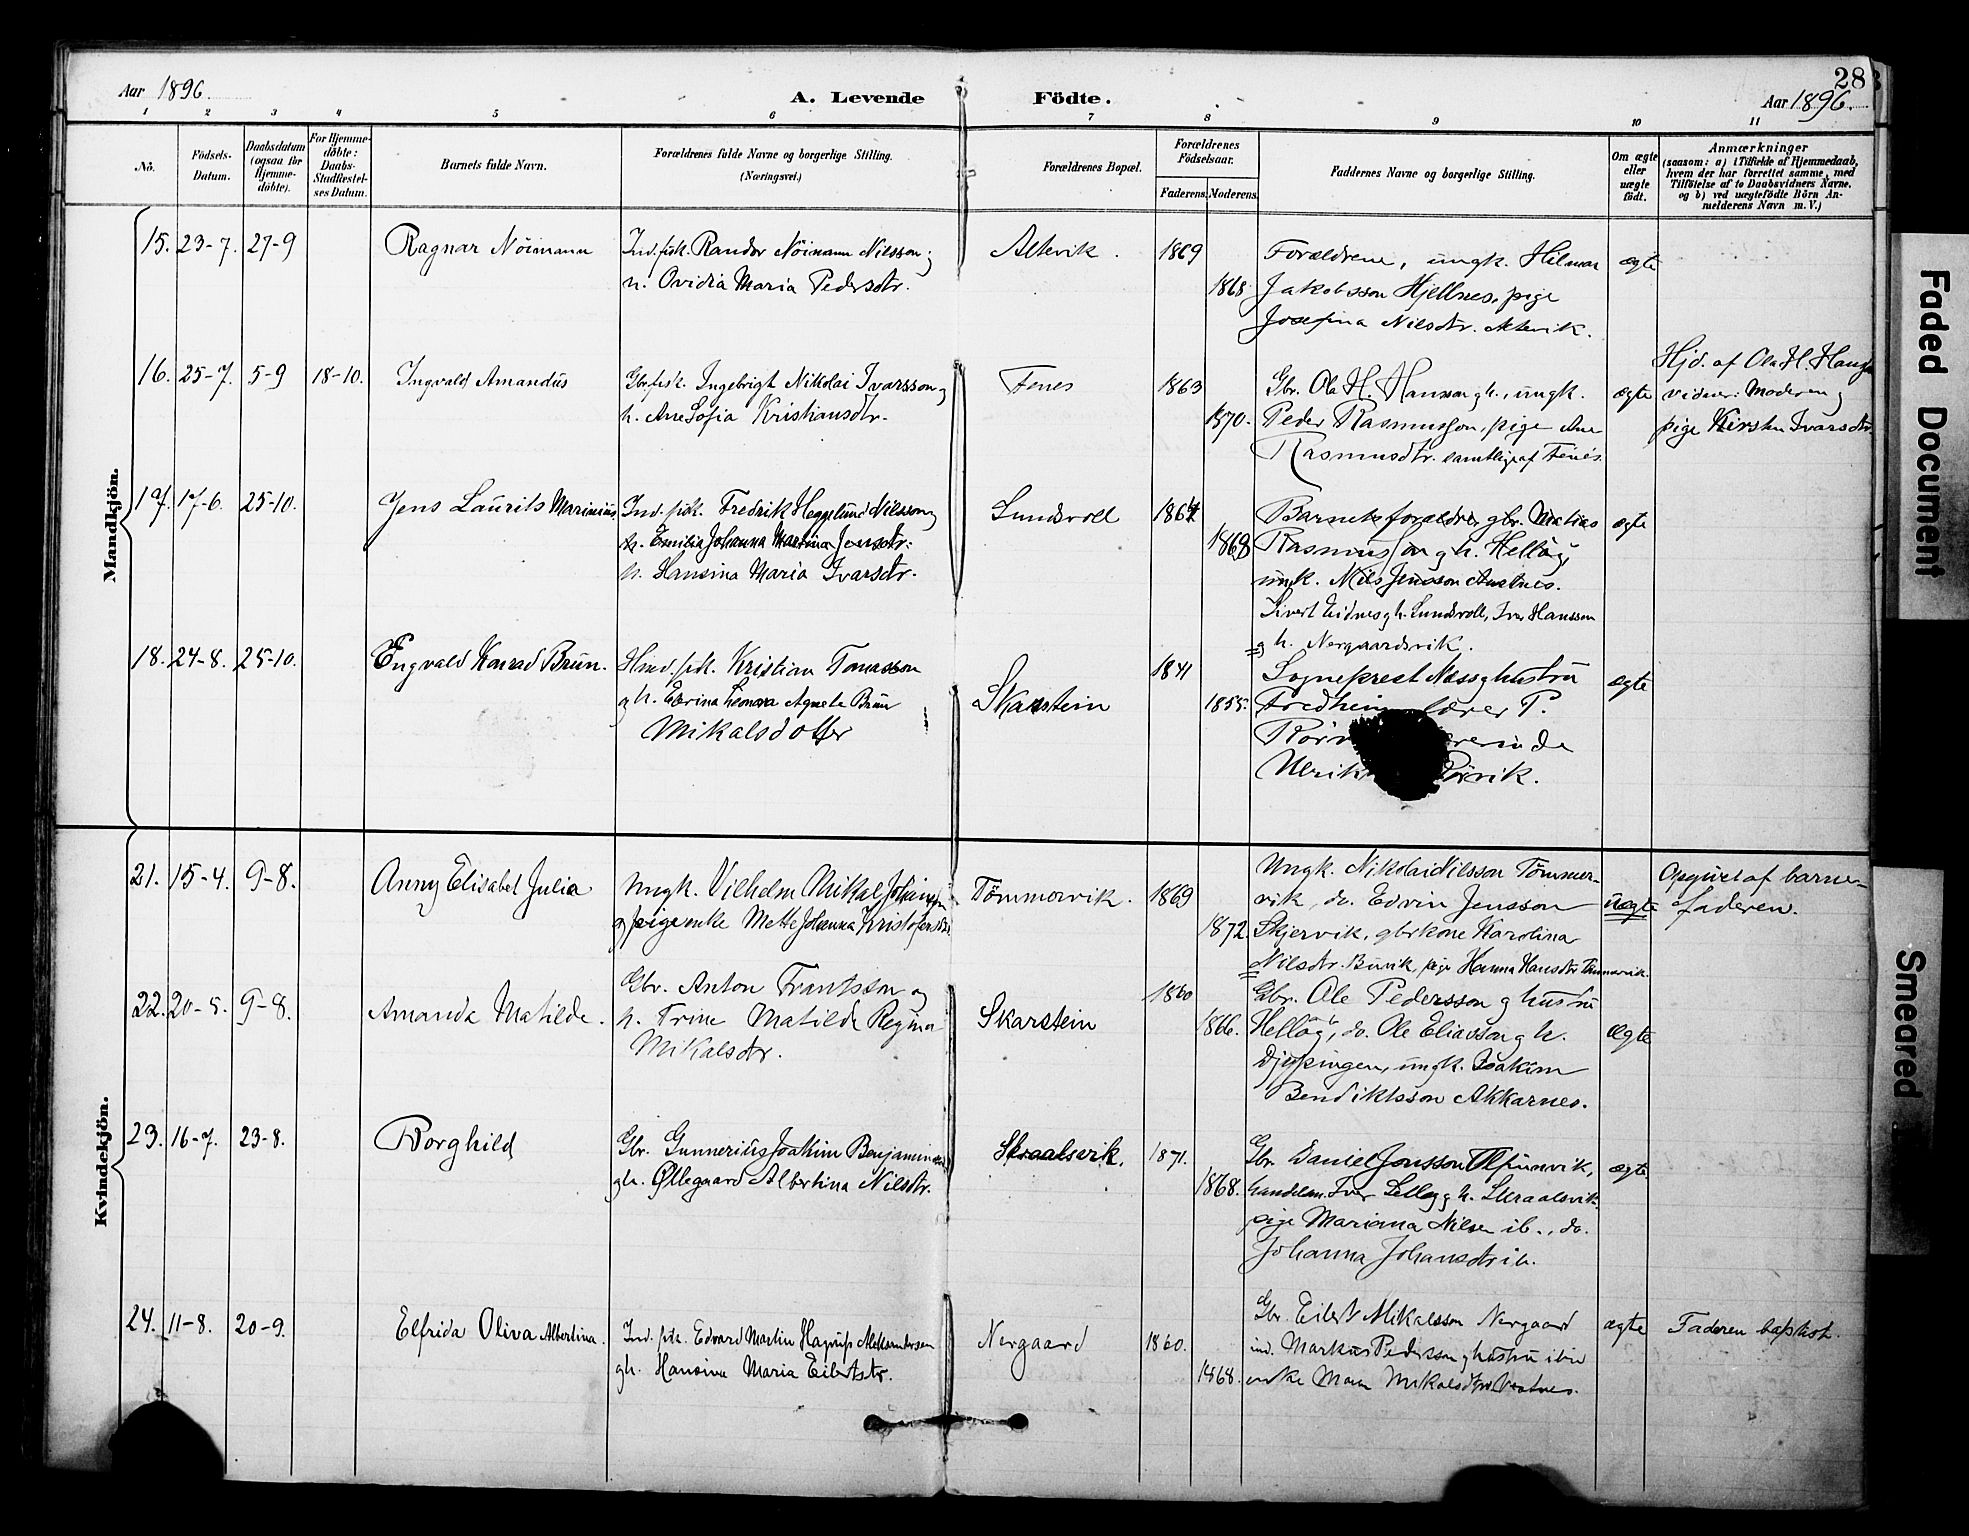 28
Aar 1896.
A. Levende Födte.
Aar 1896.
1 2 3 4 5 6 7 8 9 10 11
No.
Födsels-Datum.
Daabsdatum (ogsaa for Hjemme-döbte).
For Hjemme-döbte: Daabs-Stadfæstel-ses Datum.
Barnets fulde Navn.
Forældrenes fulde Navne og borgerlige Stilling.
(Næringsvei.)
Forældrenes Bopæl.
Forældrenes Födselsaar.
Faderens. Moderens.
Faddernes Navne og borgerlige Stilling.
Om ægte eller uægte födt.
Anmærkninger
(saasom: a) i Tilfælde af Hjemmedaab,
hvem der har forrettet samme, med
Tilföielse af to Daabsvidners Navne,
og b) ved uægtefödte Börn An-
melderens Navn m. V.)
Mandkjön.
15. 23-7. 27-9 Ragnar Nöimann
Ind. fisk. Randor Nöimann Nilsson og
h. Ovidia Maria Pedersdtr.
Altevik. 1869 1868
Forældrene, ungk. Hilmar
Jakobsson Hjellnes, pige
Josefina Nilsdtr. Altevik.
ægte
16. 25-7. 5-9 18-10. Ingvald Amandus
Gbr. fisk. Ingebrigt Nikolai Ivarsson og
h. Ane Sofia Kristiansdtr.
Fenes 1863 1870.
Gbr. Ola H. Hansson g h., ungk.
Peder Rasmusson, pige Ane
Rasmusdtr. samtlige af Fenes.
ægte
Hjd. af Ola H. Hanss
vidner: Moderen og
pige Kirsten Ivarsdtr.
17. 17-6. 25-10. Jens Laurits Marinius
Ind. fisk. Fredrik Heggelund Nilsson og
h. Emilia Johanna Martina Jensdtr.
h. Hansina Maria Ivarsdtr.
Sundsvoll 1864 1868
Barnets forældre, gbr. Matias
Rasmusson g h. Hellåg
ungk. Nils Jensson Austnes.
Sivert Eidnes g h. Sundsvoll, Ivar Hansson
g h. Nergaardsvik.
ægte
18. 24-8. 25-10. Engvald Konrad Brun.
Hmd. fisk. Kristian Tomasson
og h. Eerina Leonora Agneta Brun
Mikalsdotter
Skarstein 1841 1855.
Sogneprest Næss g hustru
Fredheim lærer P.
Rörv erinde
Ulrik Rörvik.
ægte
Kvindekjön.
21. 15-4. 9-8. Anny Elisabet Julia
Ungk. Vilhelm Mikkal Johansson
og pigeenke Mette Johanna Kristofersdtr.
Tömmervik. 1869 1872.
Ungk. Nikolai Nilsson Tömmer-
vik, do. Edvin Jensson
Skjervik, gbrkone Karolina
Nilsdtr. Buvik, pige Hanna Hansdtr Tömmervik.
uægte
Opgivet af barne-
faderen.
22. 20-5. 9-8. Amanda Matilde.
Gbr. Anton Frantsson og
h. Trine Matilde Regina
Mikalsdtr.
Skarstein 1860 1866.
Gbr. Ole Pedersson g hustru
Hellåg, do. Ole Eliasson g h.
Djupingen, ungk. Joakim
Bendiktsson Akkarnes.
ægte
23. 16-7. 23-8. Borghild
Gbr. Gunnerius Joakim Benjaminsen
g h. Øllegaard Albertina Nilsdtr.
Straalsvik. 1871. 1868.
Gbr. Daniel Jonsson Finnvik,
handelsm. Ivar Selleg g h. Straalsvik
pige Mariana Nilsen ib., do.
Johanna Johansdtr ib.
ægte
24. 11-8. 20-9. Elfrida Oliva Albertina.
Ind. fisk. Edvard Martin Hagrup Aleksandersen
g h. Hansina Maria Eilertsdtr.
Nergaard 1860. 1868.
Gbr. Eilert Mikalsson Nergaard
ind. Markus Pedersson g hustru ibid
enke Maren Mikalsdtr Vestnes.
ægte
Faderen baptist.
Faded Document
Smeared